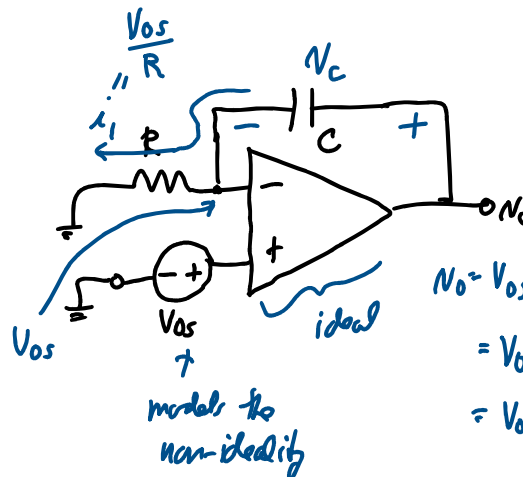 Vos
R
i₁ =
Vc
− +
R
C
−
+
Vo
Vos
Vos
ideal
models the
non-ideality
Vo = Vos
= Vo
= Vo